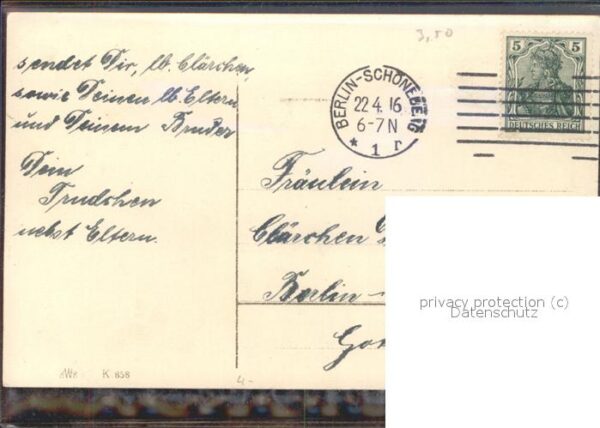 3,50
sendet Dir, lb. Clärchen,
sowie Deinen lb. Eltern
und Deinem Bruder
Dein
Trudchen
nebst Eltern.
BERLIN-SCHÖNEBERG
22.4.16
6-7N
* 1 r
5 5
DEUTSCHES REICH
Fräulein
Clärchen
Berlin-
K. 858
4-
privacy protection (c)
Datenschutz